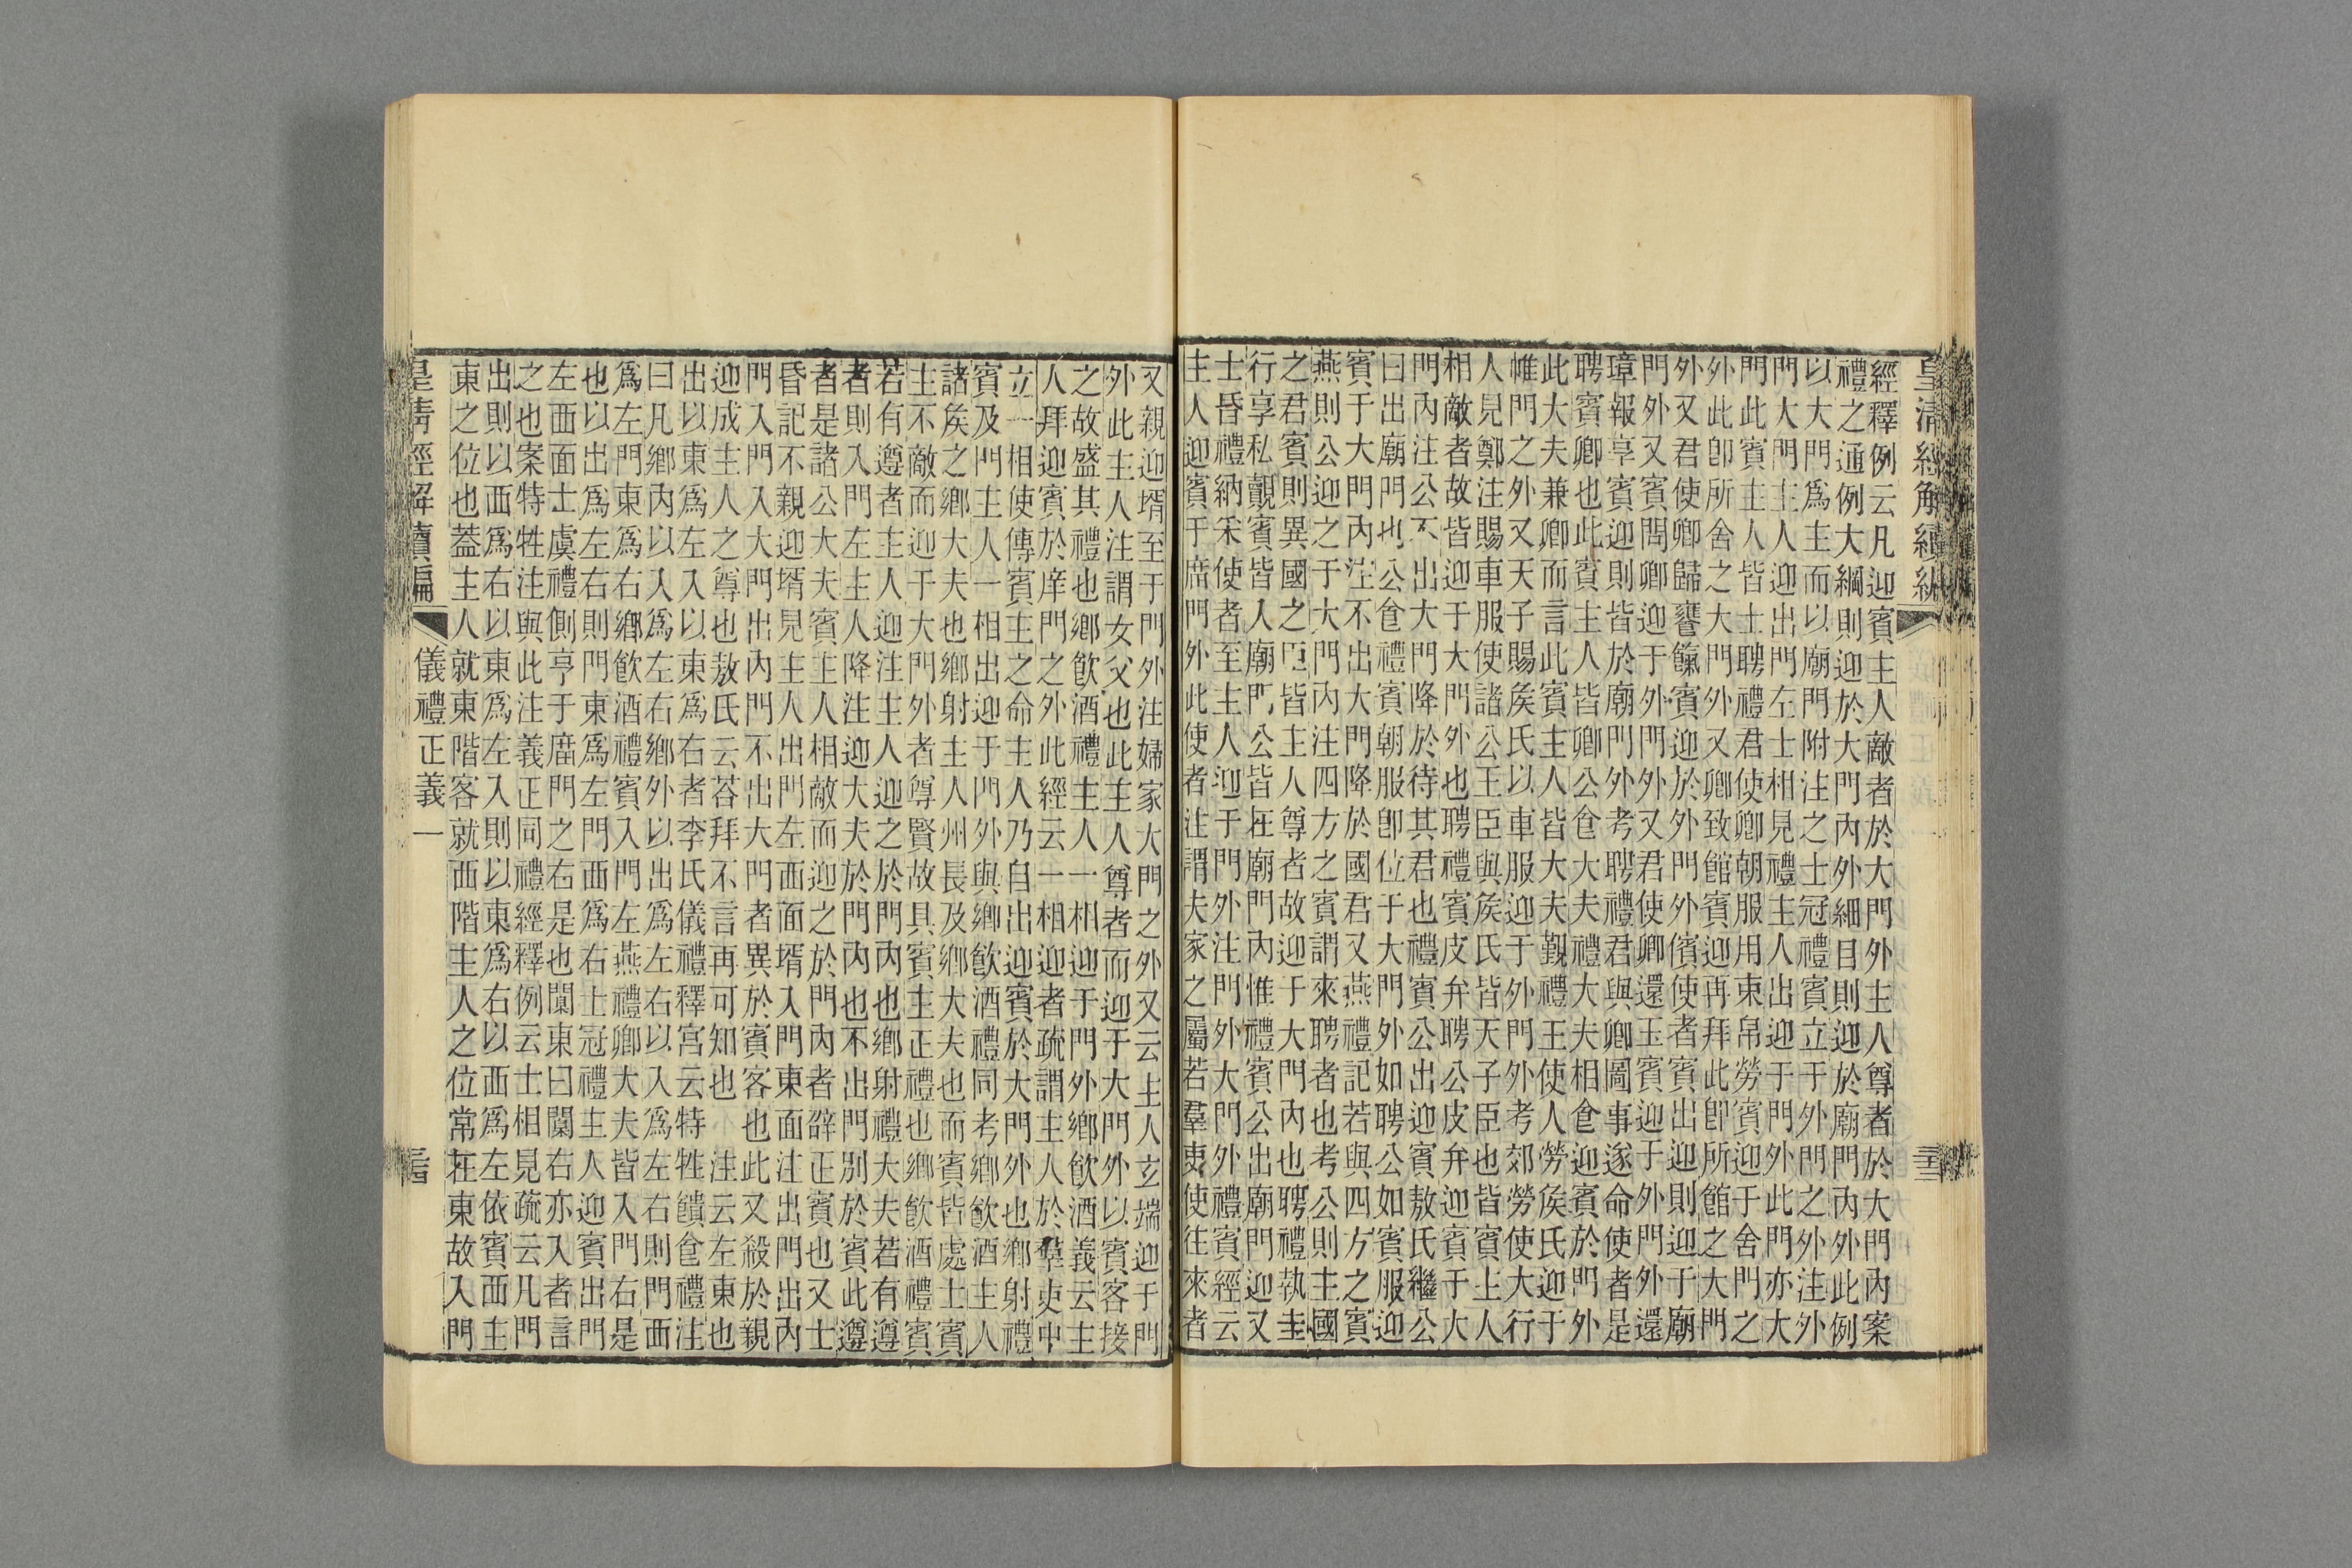 皇清經解續編
經釋例云凡迎賓主人敵者於大門外主人尊者於大門內案
禮之通例大綱則迎於大門內外細目則迎於廟門內外此例
以大門爲主而以廟門附注之士冠禮賓立于外門之外注外
門大門主人迎出門左士相見禮主人出迎于門外此門亦大
門此賓主人皆士聘禮君使卿朝服用束帛勞賓迎于舍門之
外此卽所舍之大門外又卿致館賓迎再拜此卽所館之大門
外又君使卿歸饔餼賓迎於外門外儐使者賓出迎則迎于廟
門外又賓問卿迎于外門外又君使卿還玉賓迎于外門外還
璋報享賓迎則皆於廟門外考聘禮君與卿圖事遂命使者是
聘賓卿也此賓主人皆卿公食大夫禮大夫相食迎賓於門外
此大夫兼卿而言此賓主人皆大夫覲禮王使人勞侯氏迎于
帷門之外又天子賜侯氏以車服迎于外門外考郊勞使大行
人見鄭注賜車服使諸公王臣與侯氏皆天子臣也皆賓上人
相敵者故皆迎于大門外也聘禮賓皮弁聘公皮弁迎賓于大
門內注公不出大門降於待其君也禮賓公出迎賓敖氏繼公
曰出廟門也公食禮賓朝服卽位于大門外如聘公如賓服迎
賓于大門內注不出大門降於國君又燕禮記若與四方之賓
燕則公迎之于大門內注四方之賓謂來聘者也考公則主國
之君賓則異國之臣皆主人尊者故迎于大門內也聘禮執圭
行享私覿賓皆人廟門公皆在廟門內惟禮賓公出廟門迎又
士昏禮納采使者至主人迎于門外注門外大門外禮賓經云
主人迎賓于庿門外此使者注謂夫家之屬若羣吏使往來者
又親迎壻至于門外注婦家大門之外又云主人玄端迎于門
外此主人注謂女父也此主人尊者而迎于大門外以賓客接
之故盛其禮也鄉飲酒禮主人一相迎于門外鄉飲酒義云主
人拜迎賓於庠門之外此經云一相迎者疏謂主人於羣吏中
立一相使傳賓主之命主人乃自出迎賓於大門外也鄉射禮
賓及門主人一相出迎于門外與鄉飲酒禮同考鄉飲酒主人
諸侯之鄉大夫也鄉射主人州長及鄉大夫也而賓皆處士賓
主不敵而迎于大門外者尊賢故具賓主正禮也鄉飲酒禮賓
若有遵者主人迎注主人迎之於門內也鄉射禮大夫若有遵
者則入門左主人降注迎大夫於門內也不出門別於賓此遵
者是諸公大夫賓主人相敵而迎之於門內者辟正賓也又士
昏記不親迎壻見主人出門左西面壻入門東面注出門出內
門入門入大門出內門不出大門者異於賓客也此又殺於親
迎成主人之尊也敖氏云荅拜不言再可知也　注云左東也
出以東爲左入以東爲右者李氏儀禮釋宮云特牲饋食禮注
曰凡鄉內以入爲左右鄉外以出爲左右以入爲左右則門西
爲左門東爲右鄉飲酒禮賓入門左燕禮卿大夫皆入門右是
也以出爲左右則門東爲左門西爲右士冠禮主人迎賓出門
左西面士虞禮側亨于庿門之右是也闑東曰闑右亦入者言
之也案特牲注與此注義正同禮經釋例云士相見疏云凡門
出則以西爲右以東爲左入則以東爲右以西爲左依賓西主
東之位也蓋主人就東階客就西階主人之位常在東故入門
皇清經解續編　儀禮正義一